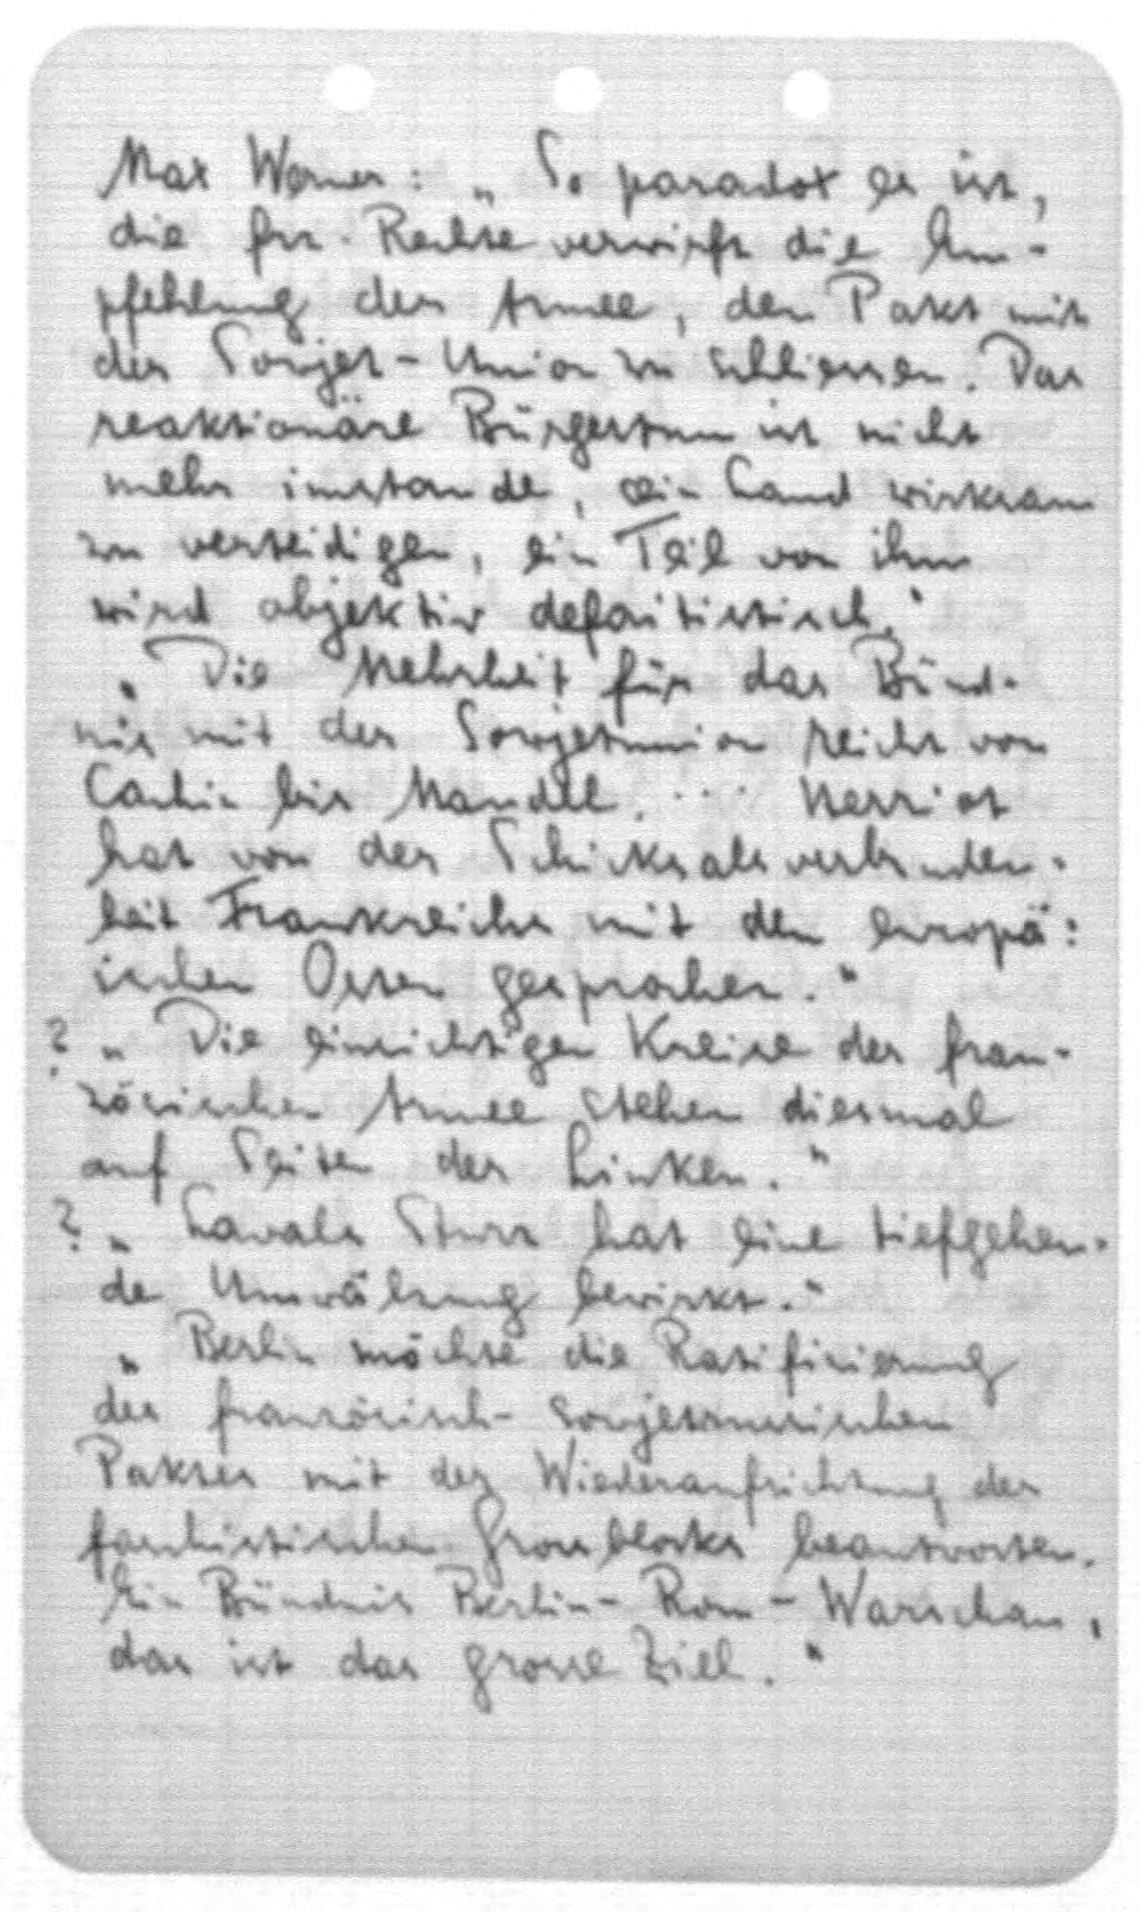 Max Werner: „So paradox es ist,
die frz. Rechte verwirft die Em-
pfehlung der Armee, den Pakt mit
der Sowjet-Union zu schliessen. Das
reaktionäre Bürgertum ist nicht
mehr imstande, sein Land wirksam
zu verteidigen, ein Teil von ihm
wird objektiv defaitistisch."
„Die Mehrheit für das Bünd-
nis mit der Sowjetunion reicht von
Cachin bis Mandel. ... Herriot
hat von der Schicksalsverbunden-
heit Frankreichs mit dem europä:
ischen Osten gesprochen."
? „Die einsichtigen Kreise der fran-
zösischen Armee stehen diesmal
auf Seiten der Linken."
? „Lavals Sturz hat eine tiefgehen-
de Umwälzung bewirkt."
„Berlin möchte die Ratifizierung
des französisch-sowjetrussischen
Paktes mit der Wiederaufrichtung des
faschistischen Grossblocks beantworten.
Ein Bündnis Berlin-Rom-Warschau,
das ist das grosse Ziel."